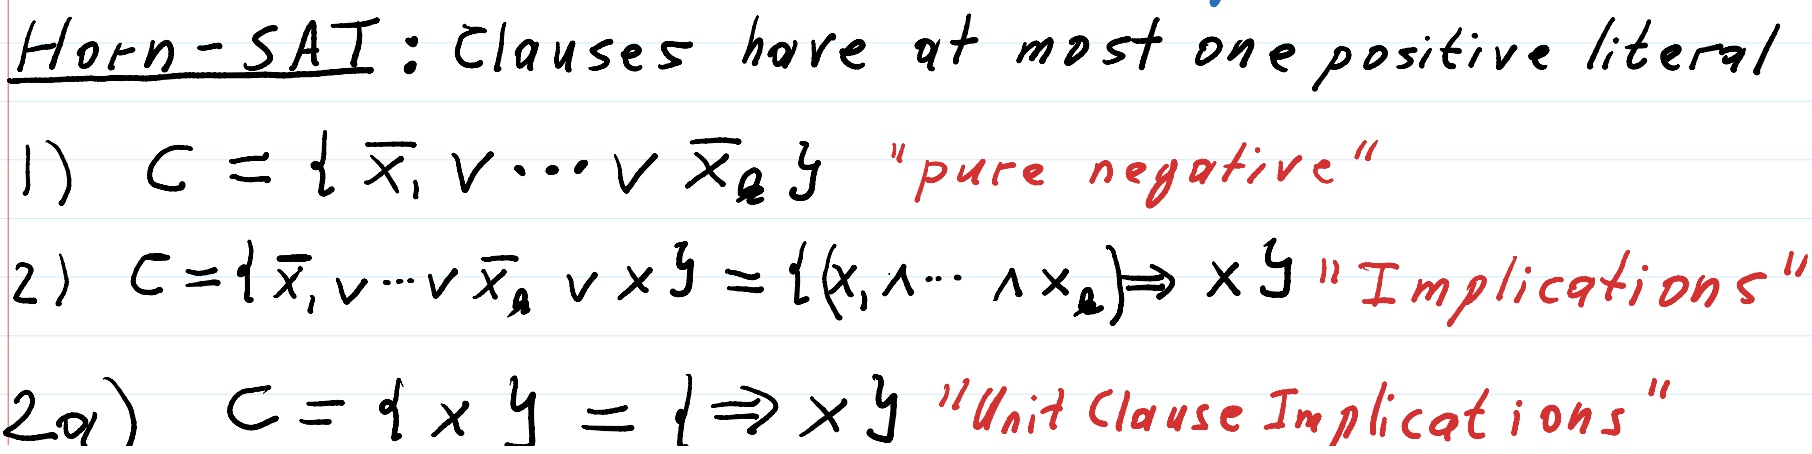 Horn-SAT: Clauses have at most one positive literal
1) C = { x̅₁ ∨ ⋯ ∨ x̅ₖ } "pure negative"
2) C = { x̅₁ ∨ ⋯ ∨ x̅ₖ ∨ x } = { (x₁ ∧ ⋯ ∧ xₖ) ⇒ x } "Implications"
2a) C = { x } = { ⇒ x } "Unit Clause Implications"